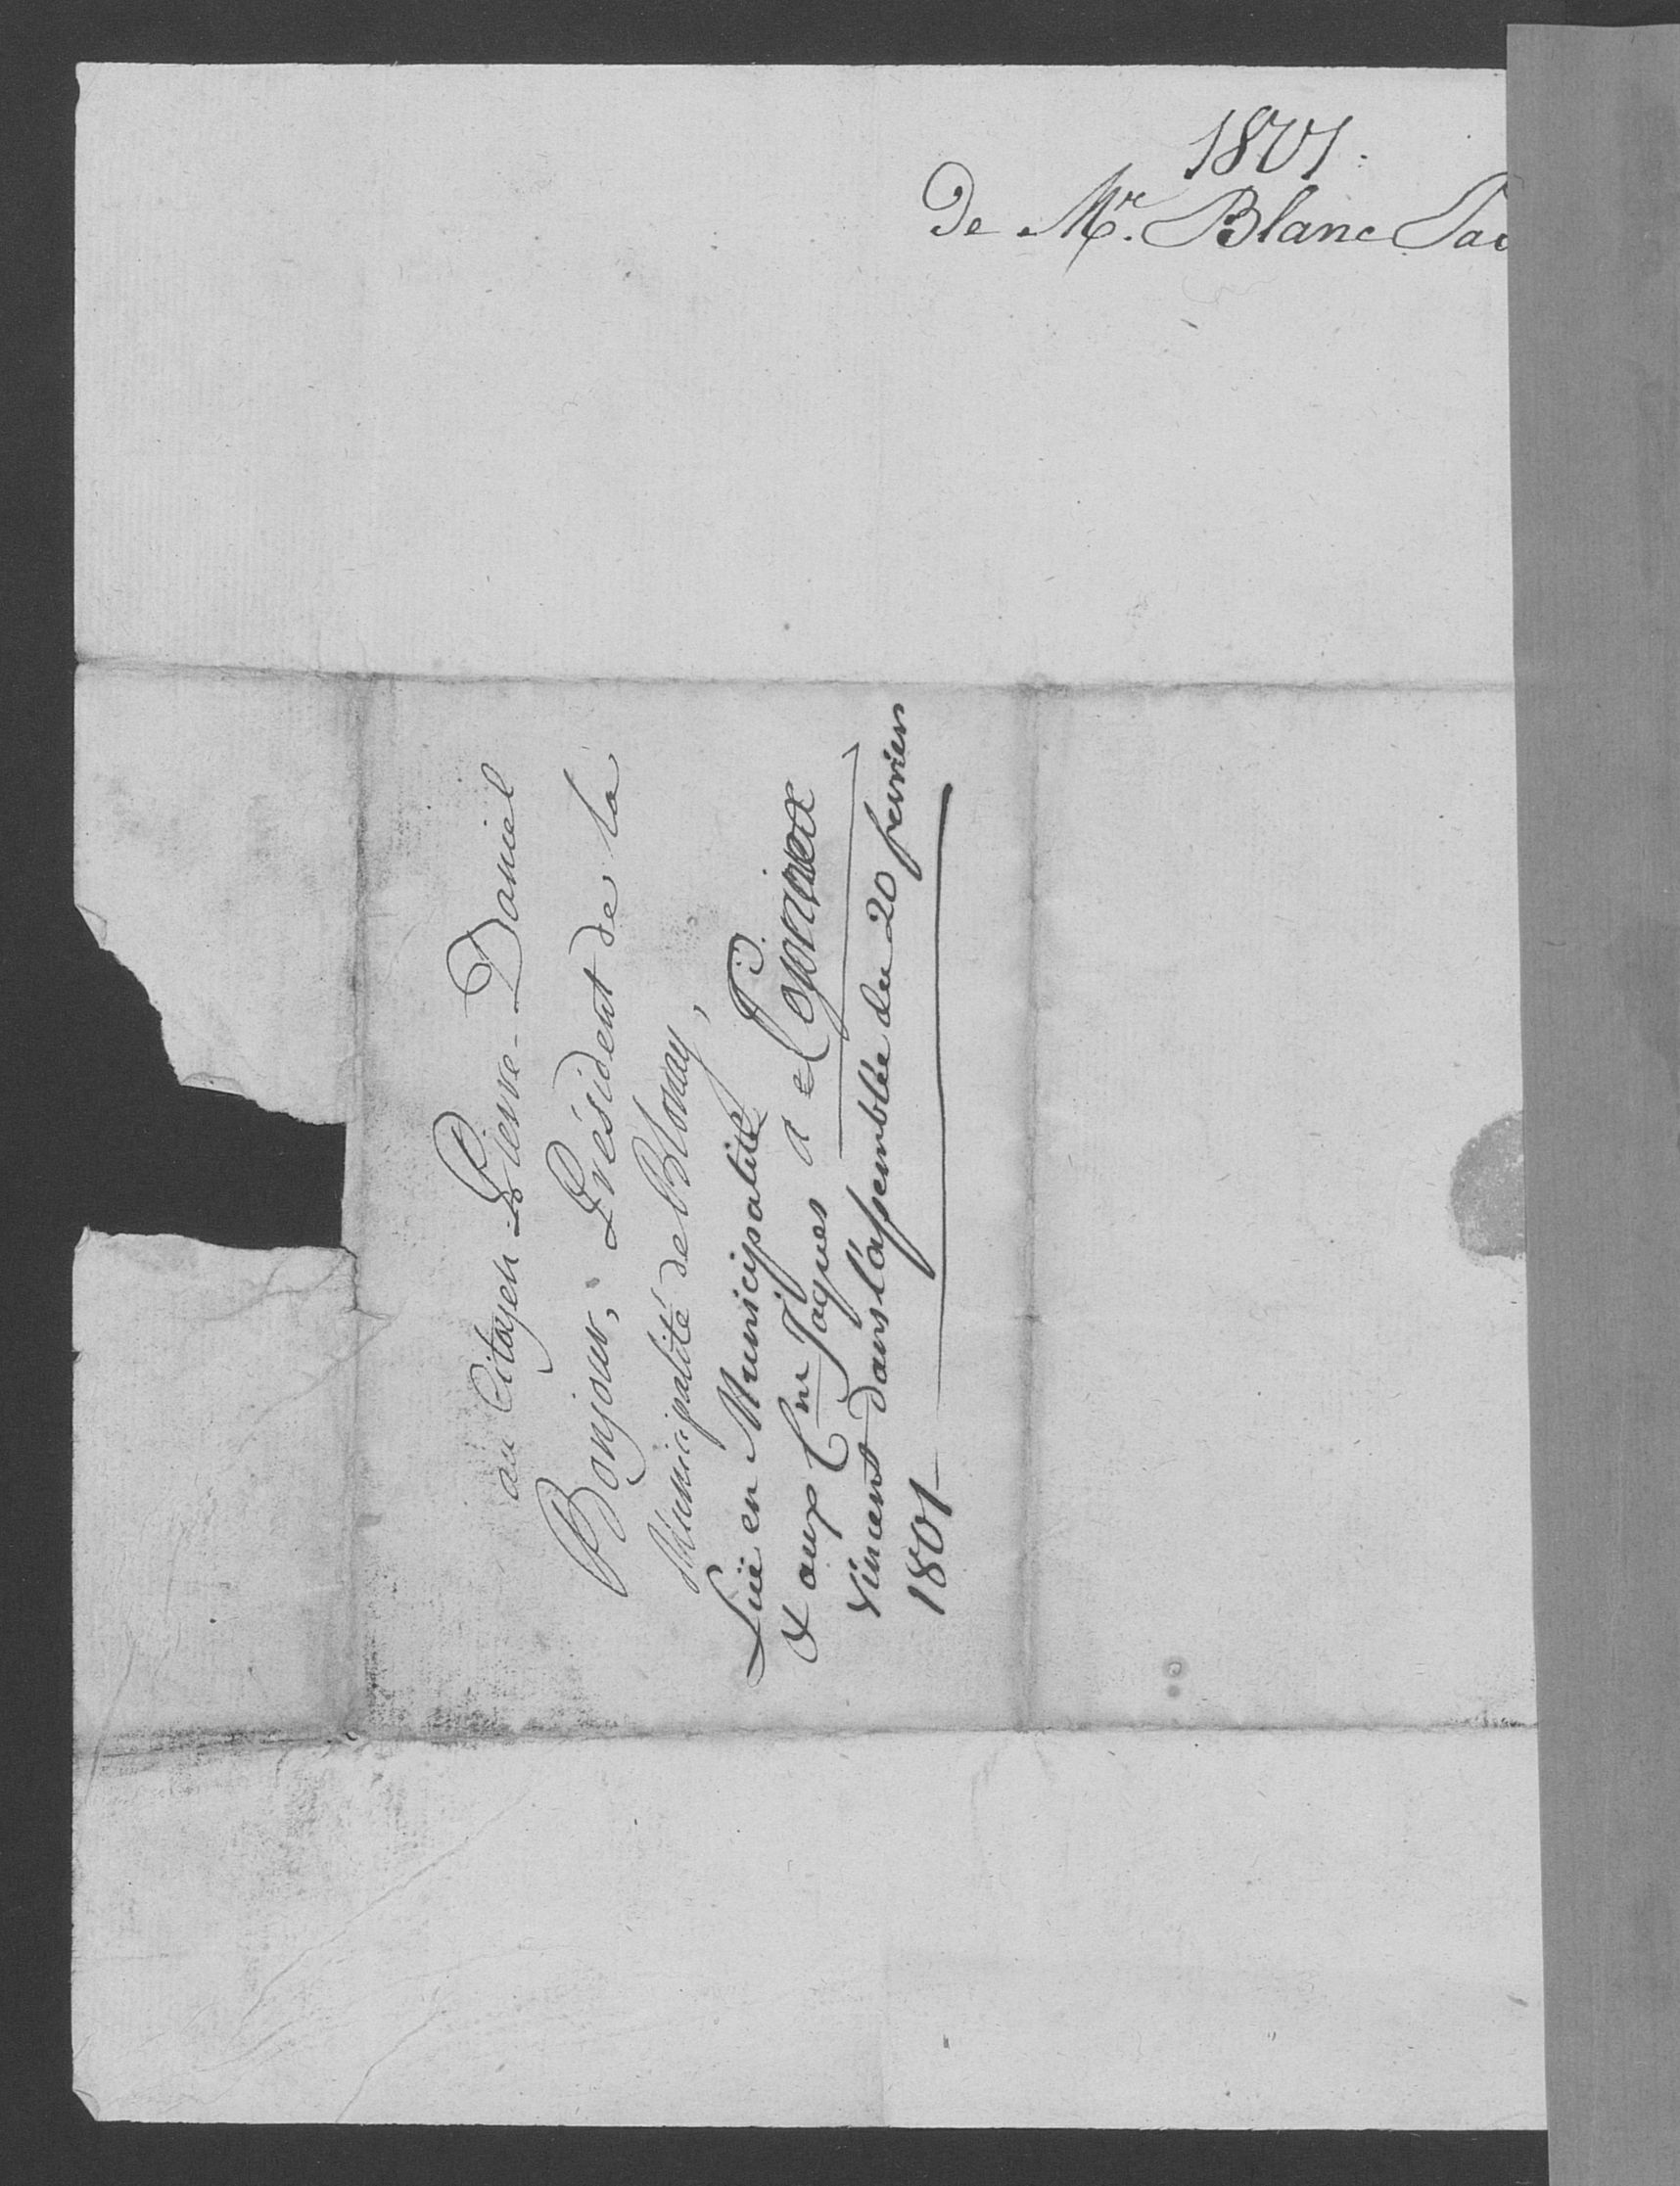 1801.
De Mr. Blanc
au Citoyen Pierre-Daniel
Bonjour, Président de la
Municipalité de Blonay,
Lüe en Municipalité
& aux Cns Jaques a
Vincent dans l'assemblée du 20 fevrier
1801